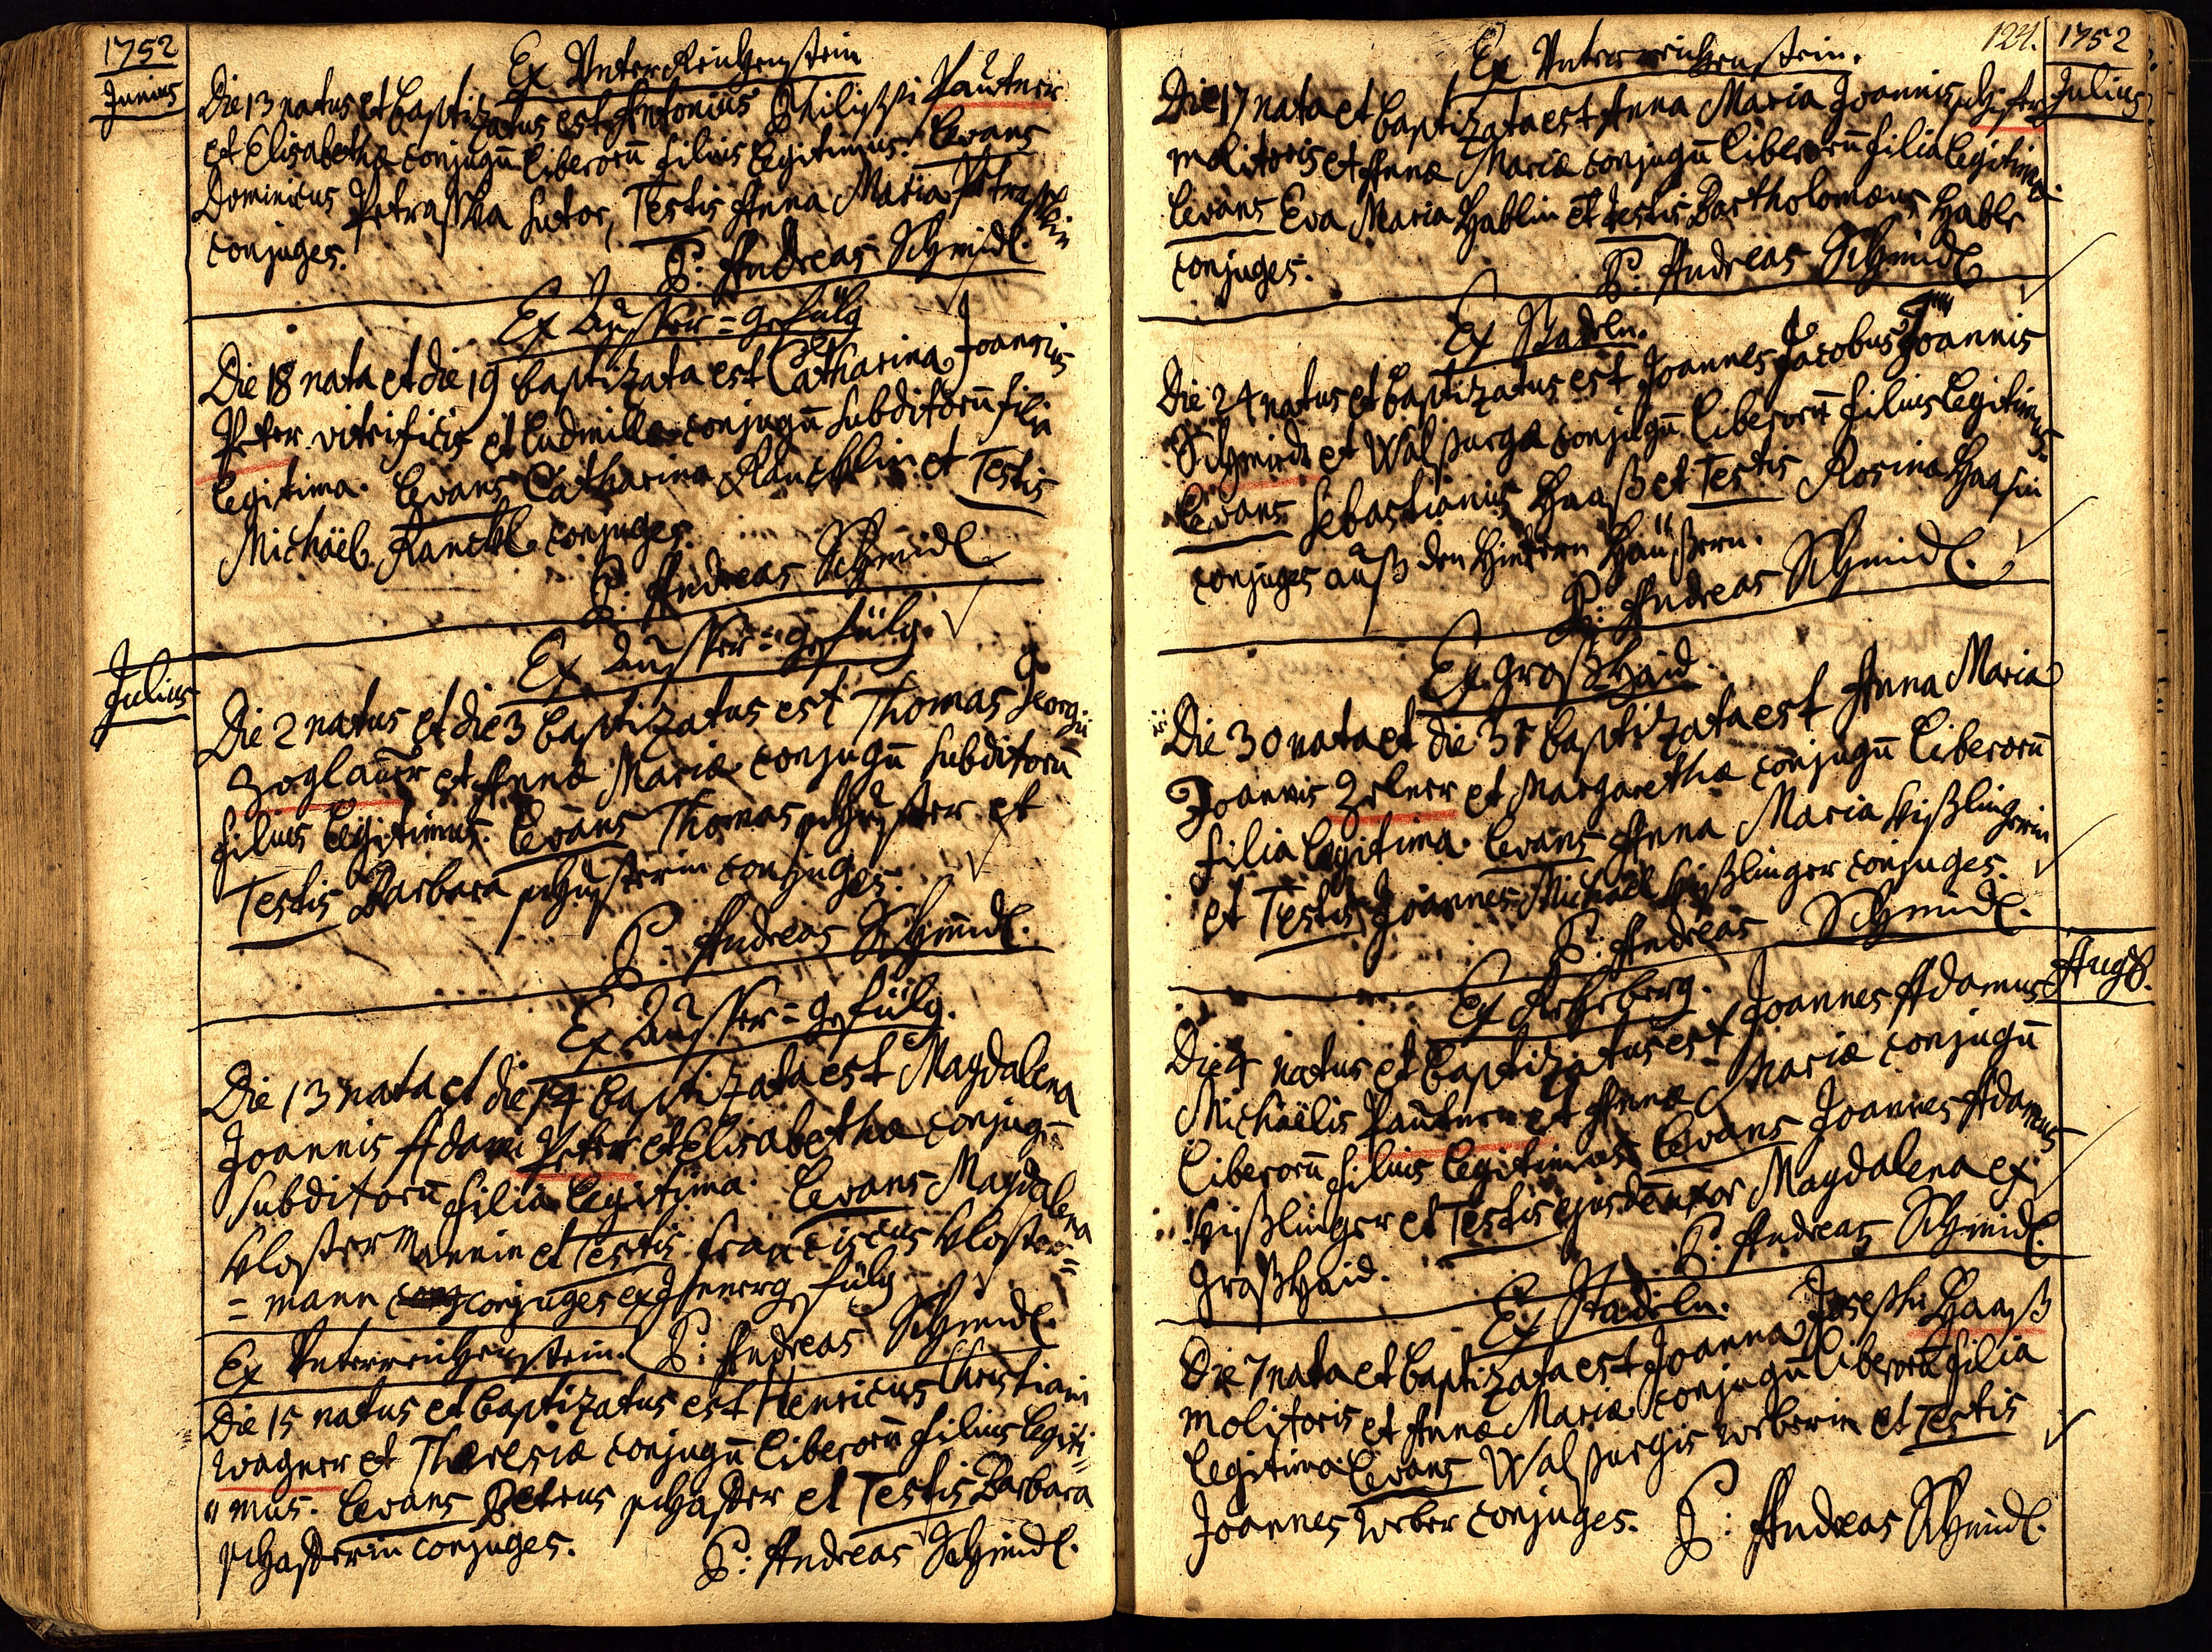 1752
Junius
Ex Unter Reichenstein
Die 13 natus et baptizatus est Antonius Philippi Pautner
et Elisabethæ conjugū liberorū filius legitimus. Levans
Dominicus Petraschka sutor, Testis Anna Maria Petraschkin
conjuges.
P: Andreas Schmidl.
Ex Ausser=gefülg
Die 18 nata et die 19 baptizata est Catharina Joannis
Peter vitrificis et Ludmillæ conjugū subditorū filia
legitima. Levans Catharina Ranckhlin et Testis
Michäel Ranckhl conjuges.
P: Andreas Schmidl
Julius
Ex Ausser=gefülg.
Die 2 natus et die 3 baptizatus est Thomas Georgii
Zoglauer et Annæ Mariæ conjugū subditorū
filius legitimus. Levans Thomas schuster et
Testis Barbara schusterin conjuges.
P: Andreas Schmidl.
Ex Ausser=gefülg.
Die 13 nata et die 14 baptizata est Magdalena
Joannis Adami Peter et Elisabethæ conjugū
subditorū filia legitima. Levans Magdalena
klostermannin et Testis franciscus kloster=
=mann conjuges ex Innergefülg
P: Andreas Schmidl.
Ex Unterreichenstein.
Die 15 natus et baptizatus est Henricus Christiani
wagner et Theresiæ conjugū liberorū filius legiti=
"mus. Levans Petrus schaster et Testis Barbara
schasterin conjuges.
P: Andreas Schmidl.
124.
1752
Julius
Ex Unterreichenstein.
Die 17 nata et baptizata est Anna Maria Joannis
molitoris et Annæ Mariæ conjugū liberorū filia legitima.
Levans Eva Maria Hablin et testis Bartholomæus Habl
conjuges.
P: Andreas Schmidl
Ex Stadeln.
Die 24 natus et baptizatus est Joannes Jacobus Joannis
Schmidt et Walpurgæ conjugū liberorū filius legitimus.
Levans Sebastianus Haaß et Testis Rosina Haasin
conjuges auß den Hintern Häußern.
P: Andreas Schmidl.
Ex großHaid.
Die 30 nata et die 31 baptizata est Anna Maria
Joannis Zelner et Margarethæ conjugū liberorū
filia legitima. Levans Anna Maria kißlingerin
et Testis Joannes Michäel kißlinger conjuges.
P: Andreas Schmidl.
Aug8.
Ex Rehberg.
Die 4 natus et baptizatus est Joannes Adamus
Michäelis Pautner et Annæ Mariæ conjugū
liberorū filius legitimus. Levans Joannes Adamus
kißlinger et Testis ejusdem uxor Magdalena ex
großhaid.
P: Andreas Schmidl.
Ex Stadeln.
Die 7 nata et baptizata est Joanna Josephi Haaß
molitoris et Annæ Mariæ conjugū liberorū filia
legitima. Levans Walpurgis weberin et Testis
Joannes weber conjuges.
P: Andreas Schmidl.